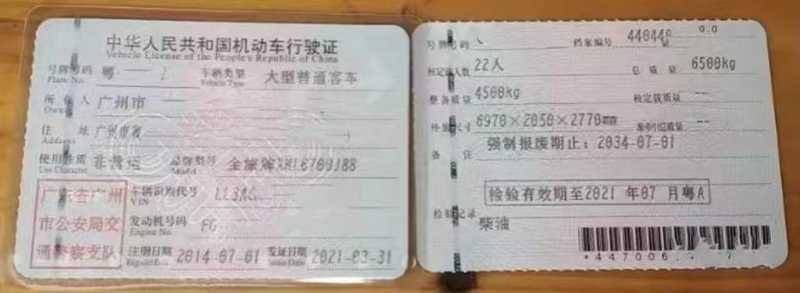 中华人民共和国机动车行驶证
Vehicle License of the People's Republic of China
号牌号码 粤 车辆类型 大型普通客车
Plate No. Vehicle Type
所有人 广州市
Owner
住址 广州市
Address
使用性质 非营运 品牌型号 金旅牌XML6700J88
Use Character Model
广东省广州
市公安局交
通警察支队
车辆识别代号 LL3AC
VIN
发动机号码 FC
Engine No.
注册日期 2014-07-01 发证日期 2021-03-31
Register Date Issue Date
号牌号码 档案编号 440440
核定载人数 22人 总质量 6500kg
整备质量 4500kg 核定载质量 --
外廓尺寸 6970×2050×2770mm 准牵引总质量 --
备注 强制报废期止：2034-07-01
检验有效期至2021 年07 月粤A
检验记录
柴油
*447006